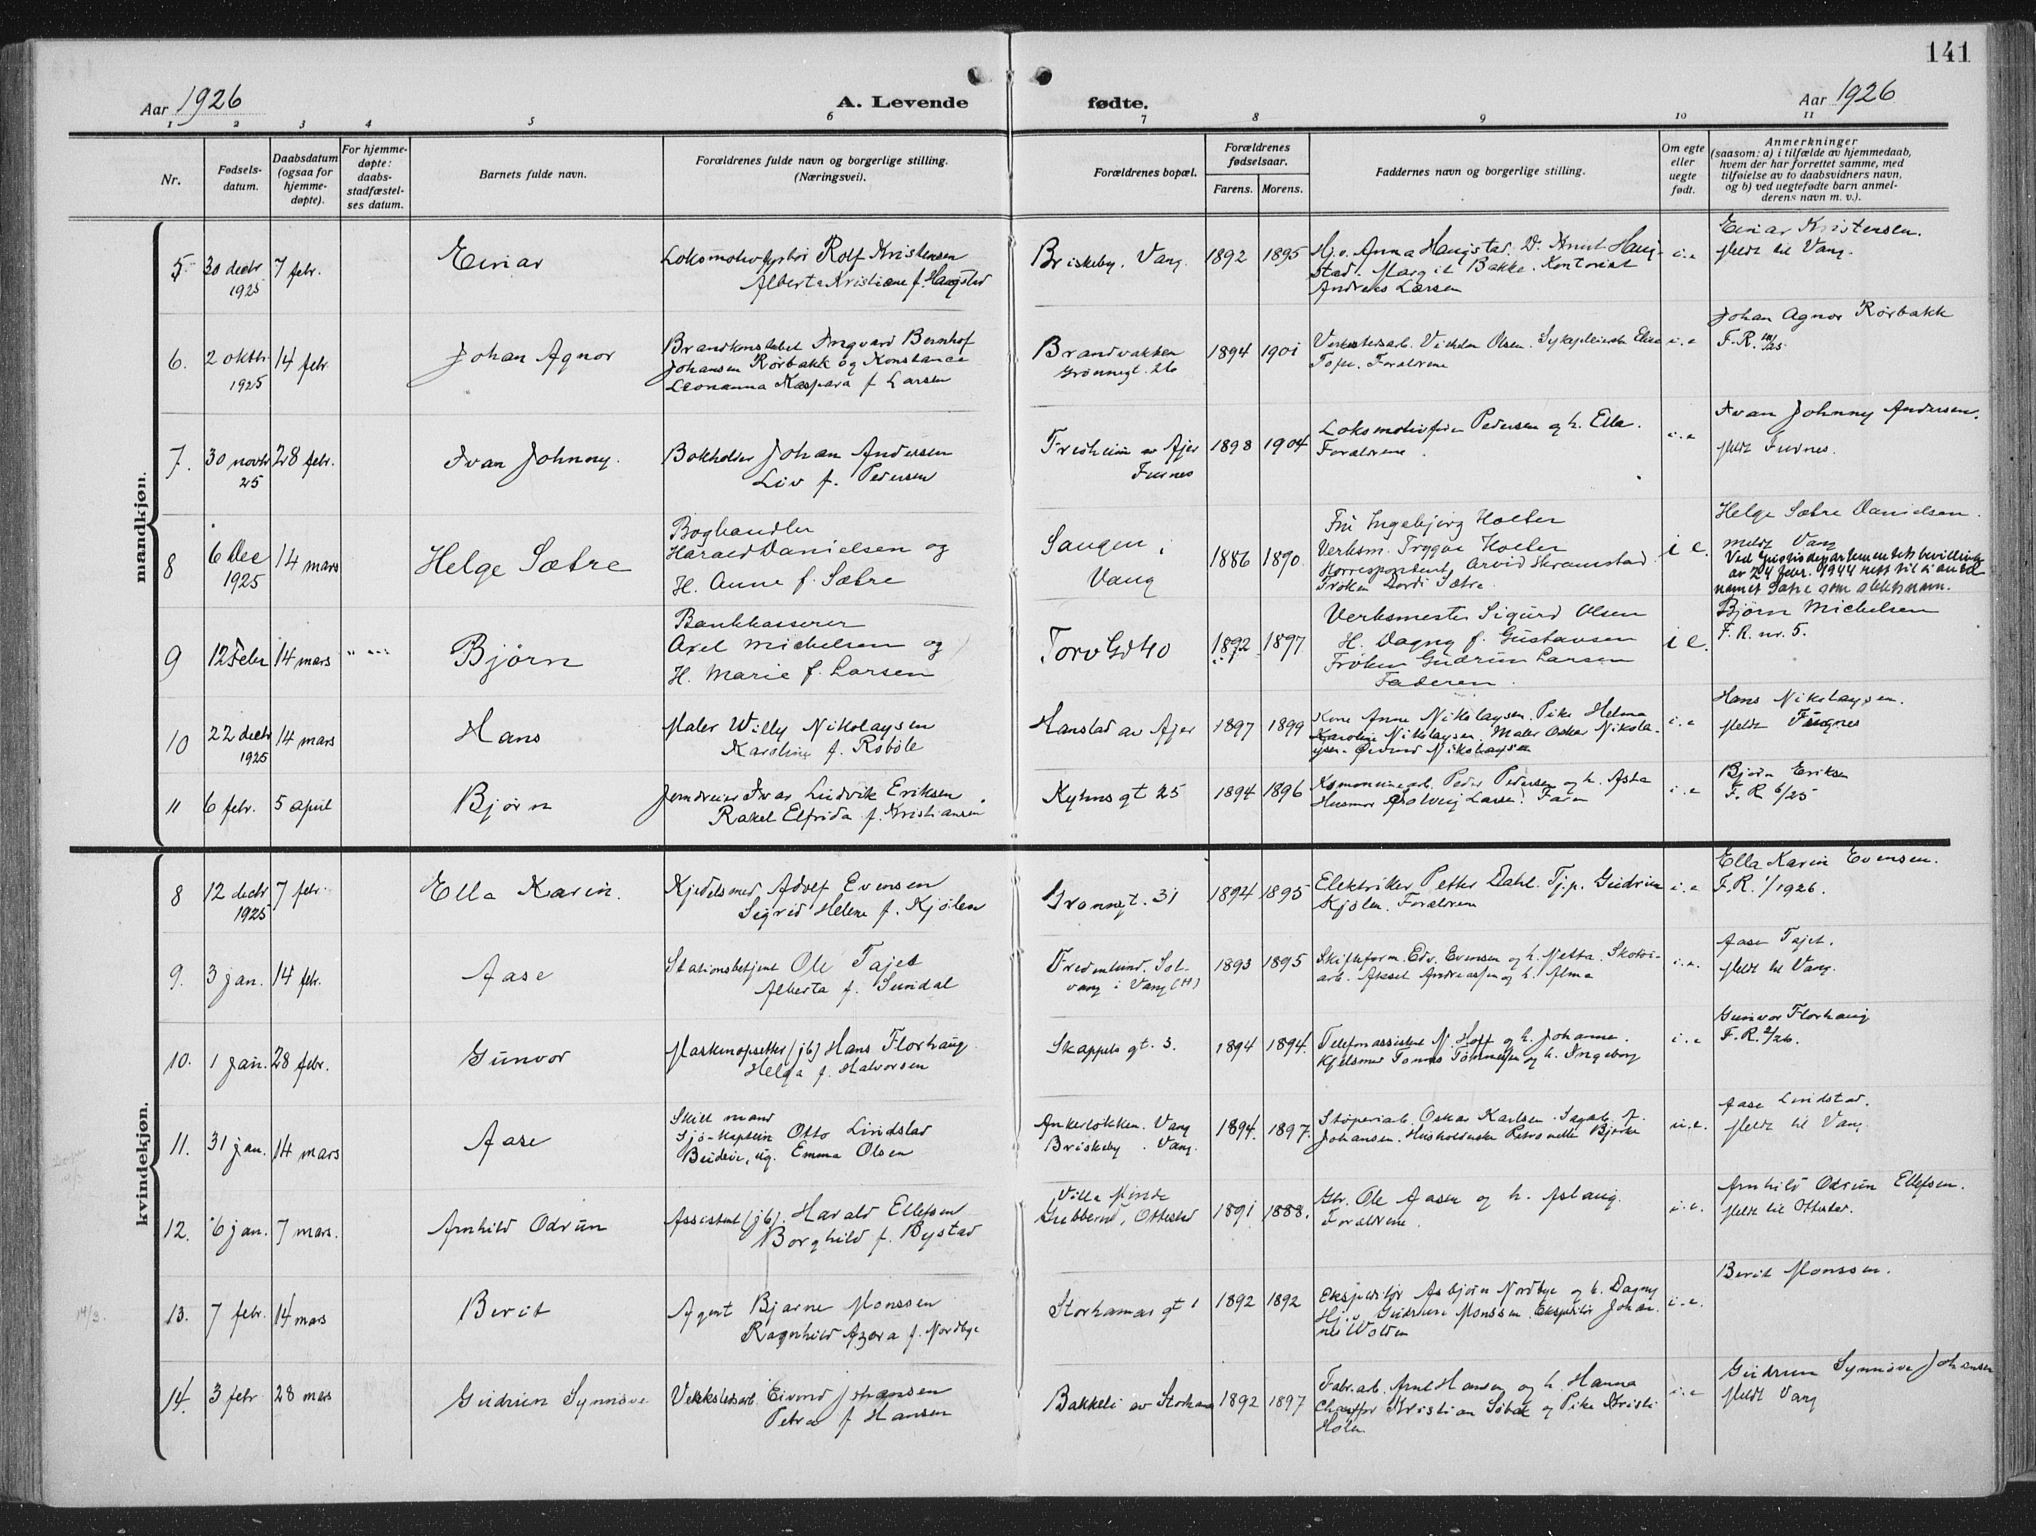 141
Aar 1926
A. Levende
fødte.
Aar 1926
1 2 3 4 5 6 7 8 9 10 11
Nr.
Fødsels-
datum.
Daabsdatum
(ogsaa for
hjemme-
døpte).
For hjemme-
døpte:
daabs-
stadfæstel-
ses datum.
Barnets fulde navn.
Forældrenes fulde navn og borgerlige stilling.
(Næringsvei).
Forældrenes bopæl.
Forældrenes
fødselsaar.
Farens. Morens.
Faddernes navn og borgerlige stilling.
Om egte
eller
uegte
født.
Anmerkninger
(saasom: a) i tilfælde av hjemmedaab,
hvem der har forrettet samme, med
tilføielse av to daabsvidners navn,
og b) ved uegtefødte barn anmel-
derens navn m. v.).
mandkjøn.
5
30 decbr
1925
7 febr.
Einar
Rolf Kristensen
Alberta Kristiane f. Haugstad
Briskeby, Vang.
1892
1895
Anna Haugstad. Knut Haug-
stad. Margit Bakke. Kontorist
Andreas Larsen
i.e
Einar Kristensen.
Meldt til Vang.
6.
2 oktbr
1925
14 febr
Johan Agnor
Brandkonstabel Ingvard Bernhof
Johansen Rørbakk og Konstance
Leonanna Kaspara f Larsen
Brandvakten
Grønnegt. 26
1894
1901
Verkstedsarb. Vilhelm Olsen.
Forældrene
i.e
Johan Agnor Rørbakk
F.R.
7.
30 novbr
25
28 febr.
Ivan Johnny.
Bokholder Johan Andersen
Liv f. Pedersen
Fredheim av Ajer
Furnes
1898
1904
Lokomotivfører Pedersen og h. Ella.
Forældrene.
i.e
Ivan Johnny Andersen.
Meldt Furnes.
8
6 Dec
1925
14 mars
Helge Sætre
Boghandler
Harald Danielsen og
H. Anne f. Sætre
Vang
1886
1890
Fru Ingebjørg Holter
Verksm. Trygve Holter
Korrespondent Arvid Skramstad
Frøken Sætre
i e.
Helge Sætre Danielsen.
meldt Vang
Ved Justisdepartementets bevilling
av 24 febr. 1944 rett til å anta
namnet Sætre som slektsnavn.
9
12 Febr
14 mars
Bjørn
Bankkasserer
Axel Michelsen og
H. Marie f. Larsen
Torvgd 40
1892
1897
Verksmester Sigurd Olsen
H. Dagny f. Gustavsen
Frøken Gudrun Larsen
Faderen.
i e.
Bjørn Michelsen
F.R. nr. 5.
10
22 decbr
1925
14 mars
Hans
Maler Willy Nikolaysen
Karoline f. Robøle
Hanstad av Ajer
1897
1899
Kone Anne Nikolaysen. Pike Helma
Karoline Nikolaysen. Maler Oskar Nikola-
ysen. Øivind Nikolaysen
i.e
Hans Nikolaysen.
Meldt
11
6 febr.
5 april
Bjørn
Jerndreier Ivar Ludvik Eriksen.
Rakel Elfrida f. Kristiansen
Kyhns gt 25
1894
1896
Kommunearb. Peder Pedersen og h. Asta
Solveig Larsen. Faren
i.e
Bjørn Eriksen
F.R. 6/25
kvindekjøn.
8
12 decbr
1925
7 febr.
Ella Karin.
Kjedelsmed Adolf Evensen
Sigrid Helene f. Kjølen
Grønnegt. 31
1894
1895
Elektriker Petter Dahl. Tjp. Gudrun
Kjølen. Forældrene
i.e
Ella Karin Evensen.
F.R. 1/1926.
9.
3 jan.
14 febr.
Aase
Stationsbetjent Ole Tajet
Alberta f. Sundal
Fredenlund. Sol-
vang i Vang (H)
1893
1895
Skifteform. Edv. Evensen og h. Netta. Skotøi-
arb. Aksel Andreassen og h. Alma
i.e.
Aase Tajet.
Meldt til Vang.
10.
1 jan.
28 febr.
Gunvor
Maskinopsetter (jb) Hans Florhaug
Helga f. Halvorsen
Skappels gt. 3.
1894
1894.
Telefonassistent N. Hoff og h. Johanne.
Kjelsmed Tomas Tønnesen og h. Ingeborg
i.e
Gunvor Florhaug
F.R. 2/26.
11.
31 jan.
14 mars
Aase
Skilt mand
Sjø-kaptein Otto Lindstad
Budeie, ug. Emma Olsen
Ankerløkken. Vang
Briskeby. Vang.
1894.
1897.
Støperiarb. Oskar Karlsen. Sagarb. J.
Johansen. Husholderske Petronelle Bjørke
u.e.
Aase Lindstad.
Meldt til Vang
12.
6 jan.
7 mars.
Arnhild Odrun
Assistent (jb). Harald Ellefsen
Borghild f. Bystad
Villa Minde
Gubberud, Ottestad
1891
1888.
Gbr. Ole Aasen og h. Aslaug.
Forældrene.
i.e.
Arnhild Odrun Ellefsen.
Meldt til Ottestad.
14/3.
13.
7 febr.
14 mars
Berit
Agent Bjarne Monssen
Ragnhild Azora f. Nordbye
Storhamar gt 1
1892
1892
Ekspeditør Asbjørn Nordbye og h. Dagny
Gudrun Monssen. Ekspeditør Johan-
nes Wolden
i.e.
Berit Monssen.
14.
3 febr
28 mars
Gudrun Synnøve
Verkstedsarb. Eivind Johansen
Petra f Hansen
Bakkeli av Storhamar
1892
1897
Fabr.arb. Arne Hansen og h. Hanna
Chauffør Kristian Sobak og Pike Kristi
Holen
i.e
Gudrun Synnøve Johansen
Meldt Vang